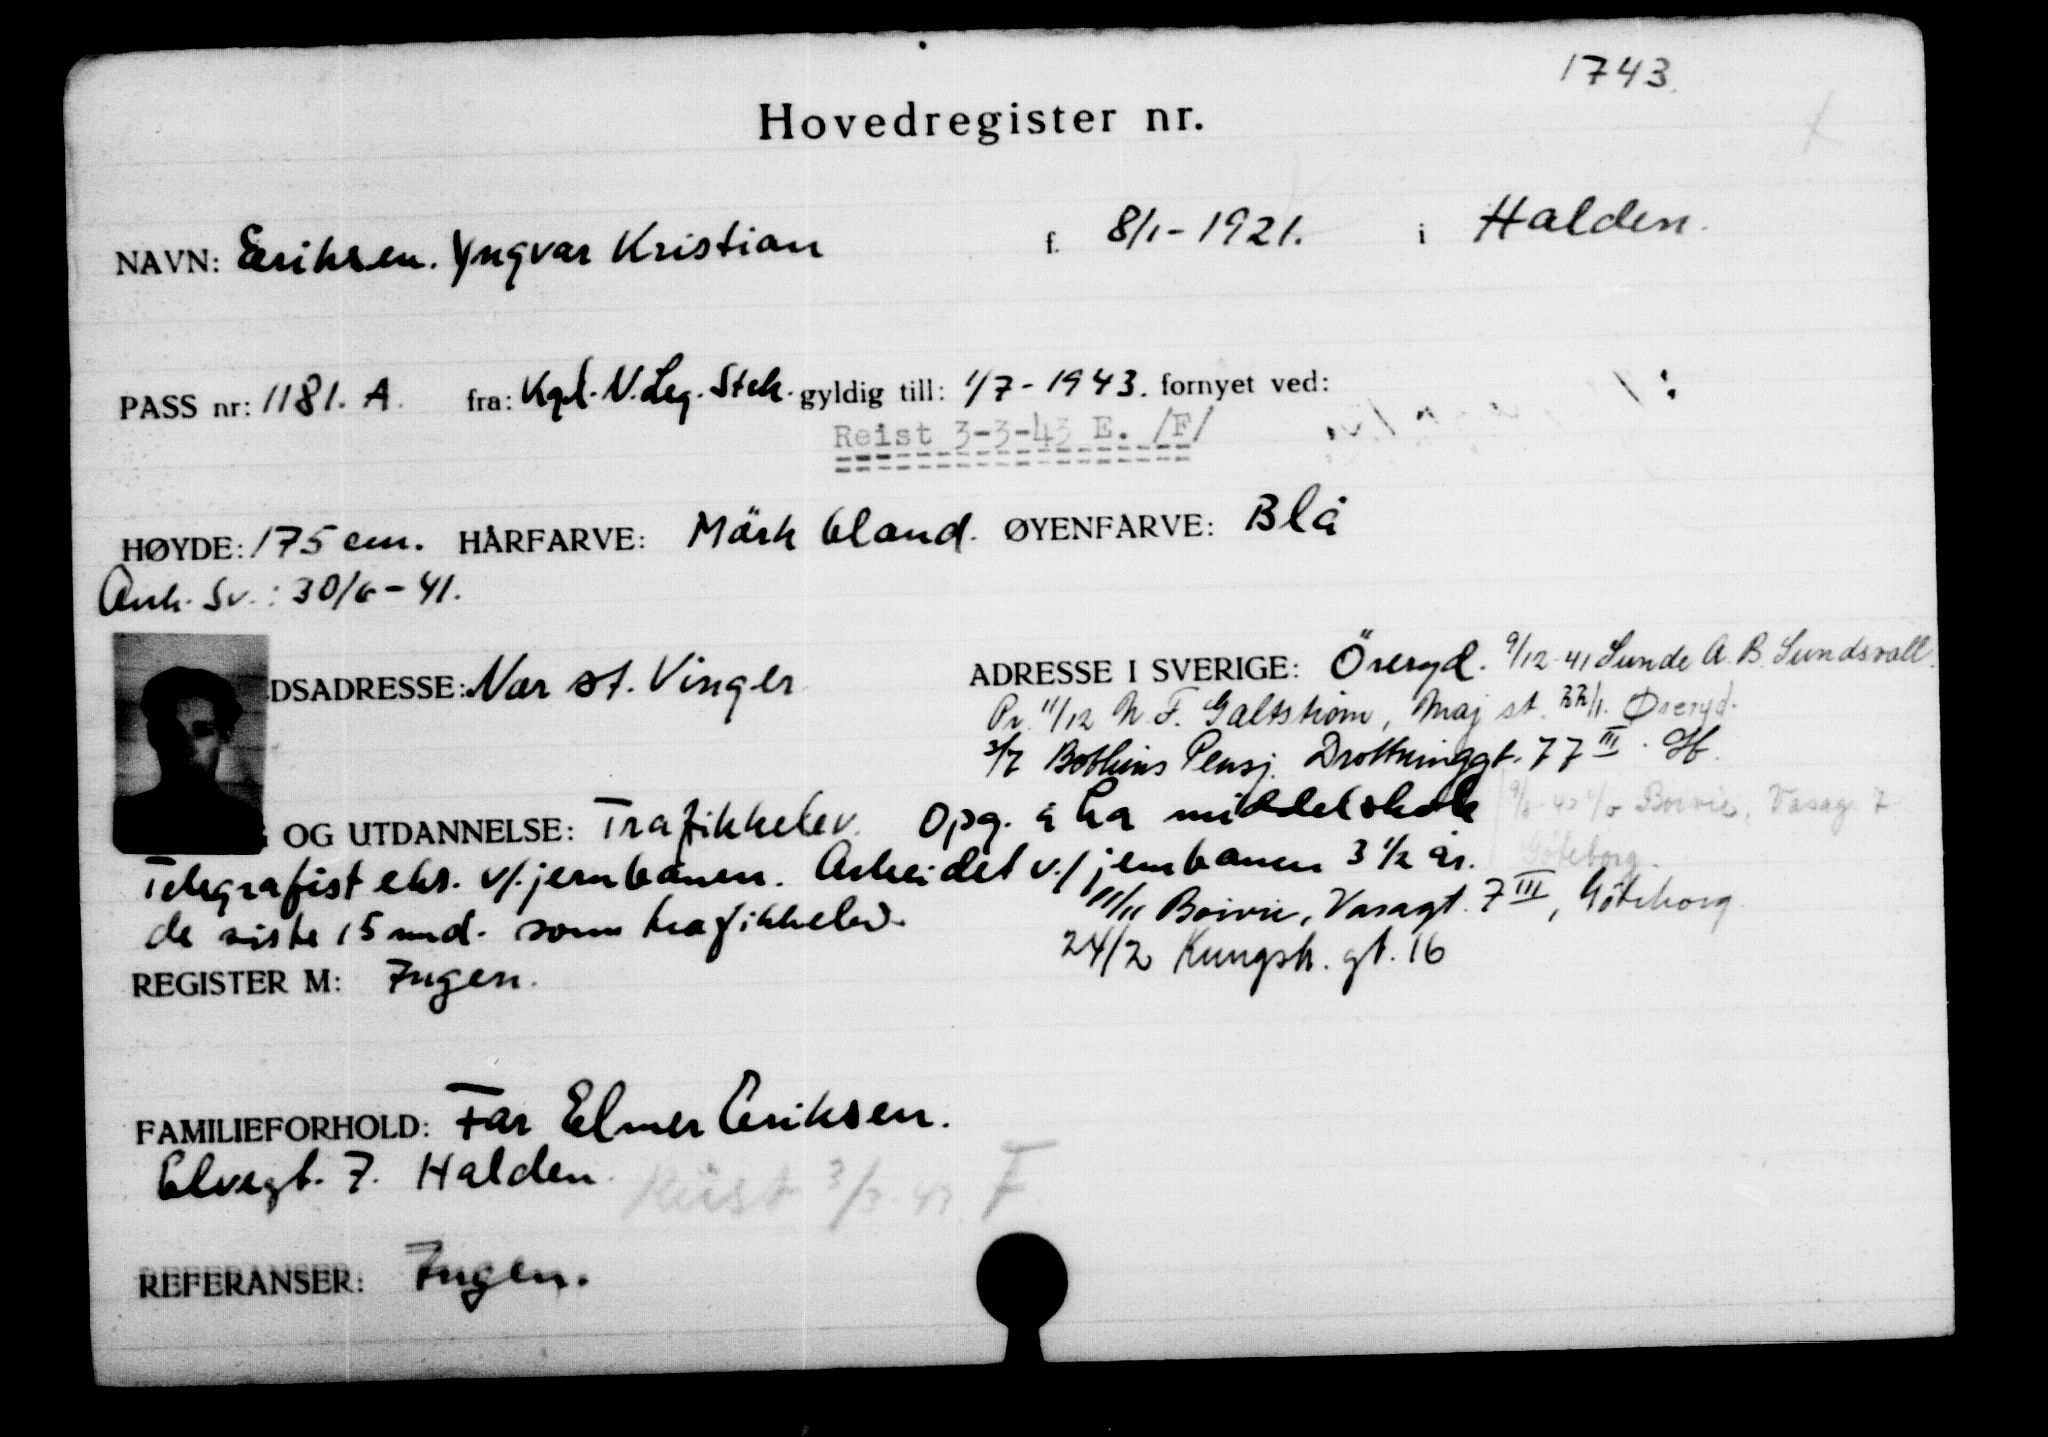 1743
Hovedregister nr.
NAVN: Eriksen. Yngvar Kristian f. 8/1-1921. i Halden.
PASS nr: 1181. A. fra: Kgl. N. Leg. Stck. gyldig till: 1/7-1943. fornyet ved:
Reist 3-3-43 E. /F/
HØYDE: 175 cm. HÅRFARVE: Mörk blond. ØYENFARVE: Blå
Ank. Sv.: 30/6-41.
DSADRESSE: Nar st. Vinger
ADRESSE I SVERIGE: Öreryd. 9/12-41 Sunde A.B. Sundsvall.
Pr. 11/12 N.F. Galtström, Maj st. 22/1. Øreryd.
3/7 Bobbins Pensj. Drottninggt. 77 III.
G OG UTDANNELSE: Trafikkelev. Opg. å ha middelskole
Boivie, Vasag. 7
Göteborg.
Telegrafist eks. v/. jernbanen. Arbeidet v./ jernbanen 3 1/2 år.
de siste 15 mnd. som trafikkelev.
11/11 Boivie, Vasagt. 7 III, Göteborg.
24/2 Kungsh. gt. 16
REGISTER M: Ingen.
FAMILIEFORHOLD: Far Elmer Eriksen.
Elvegt. 7. Halden.
Reist 3/3-43. F.
REFERANSER: Ingen.